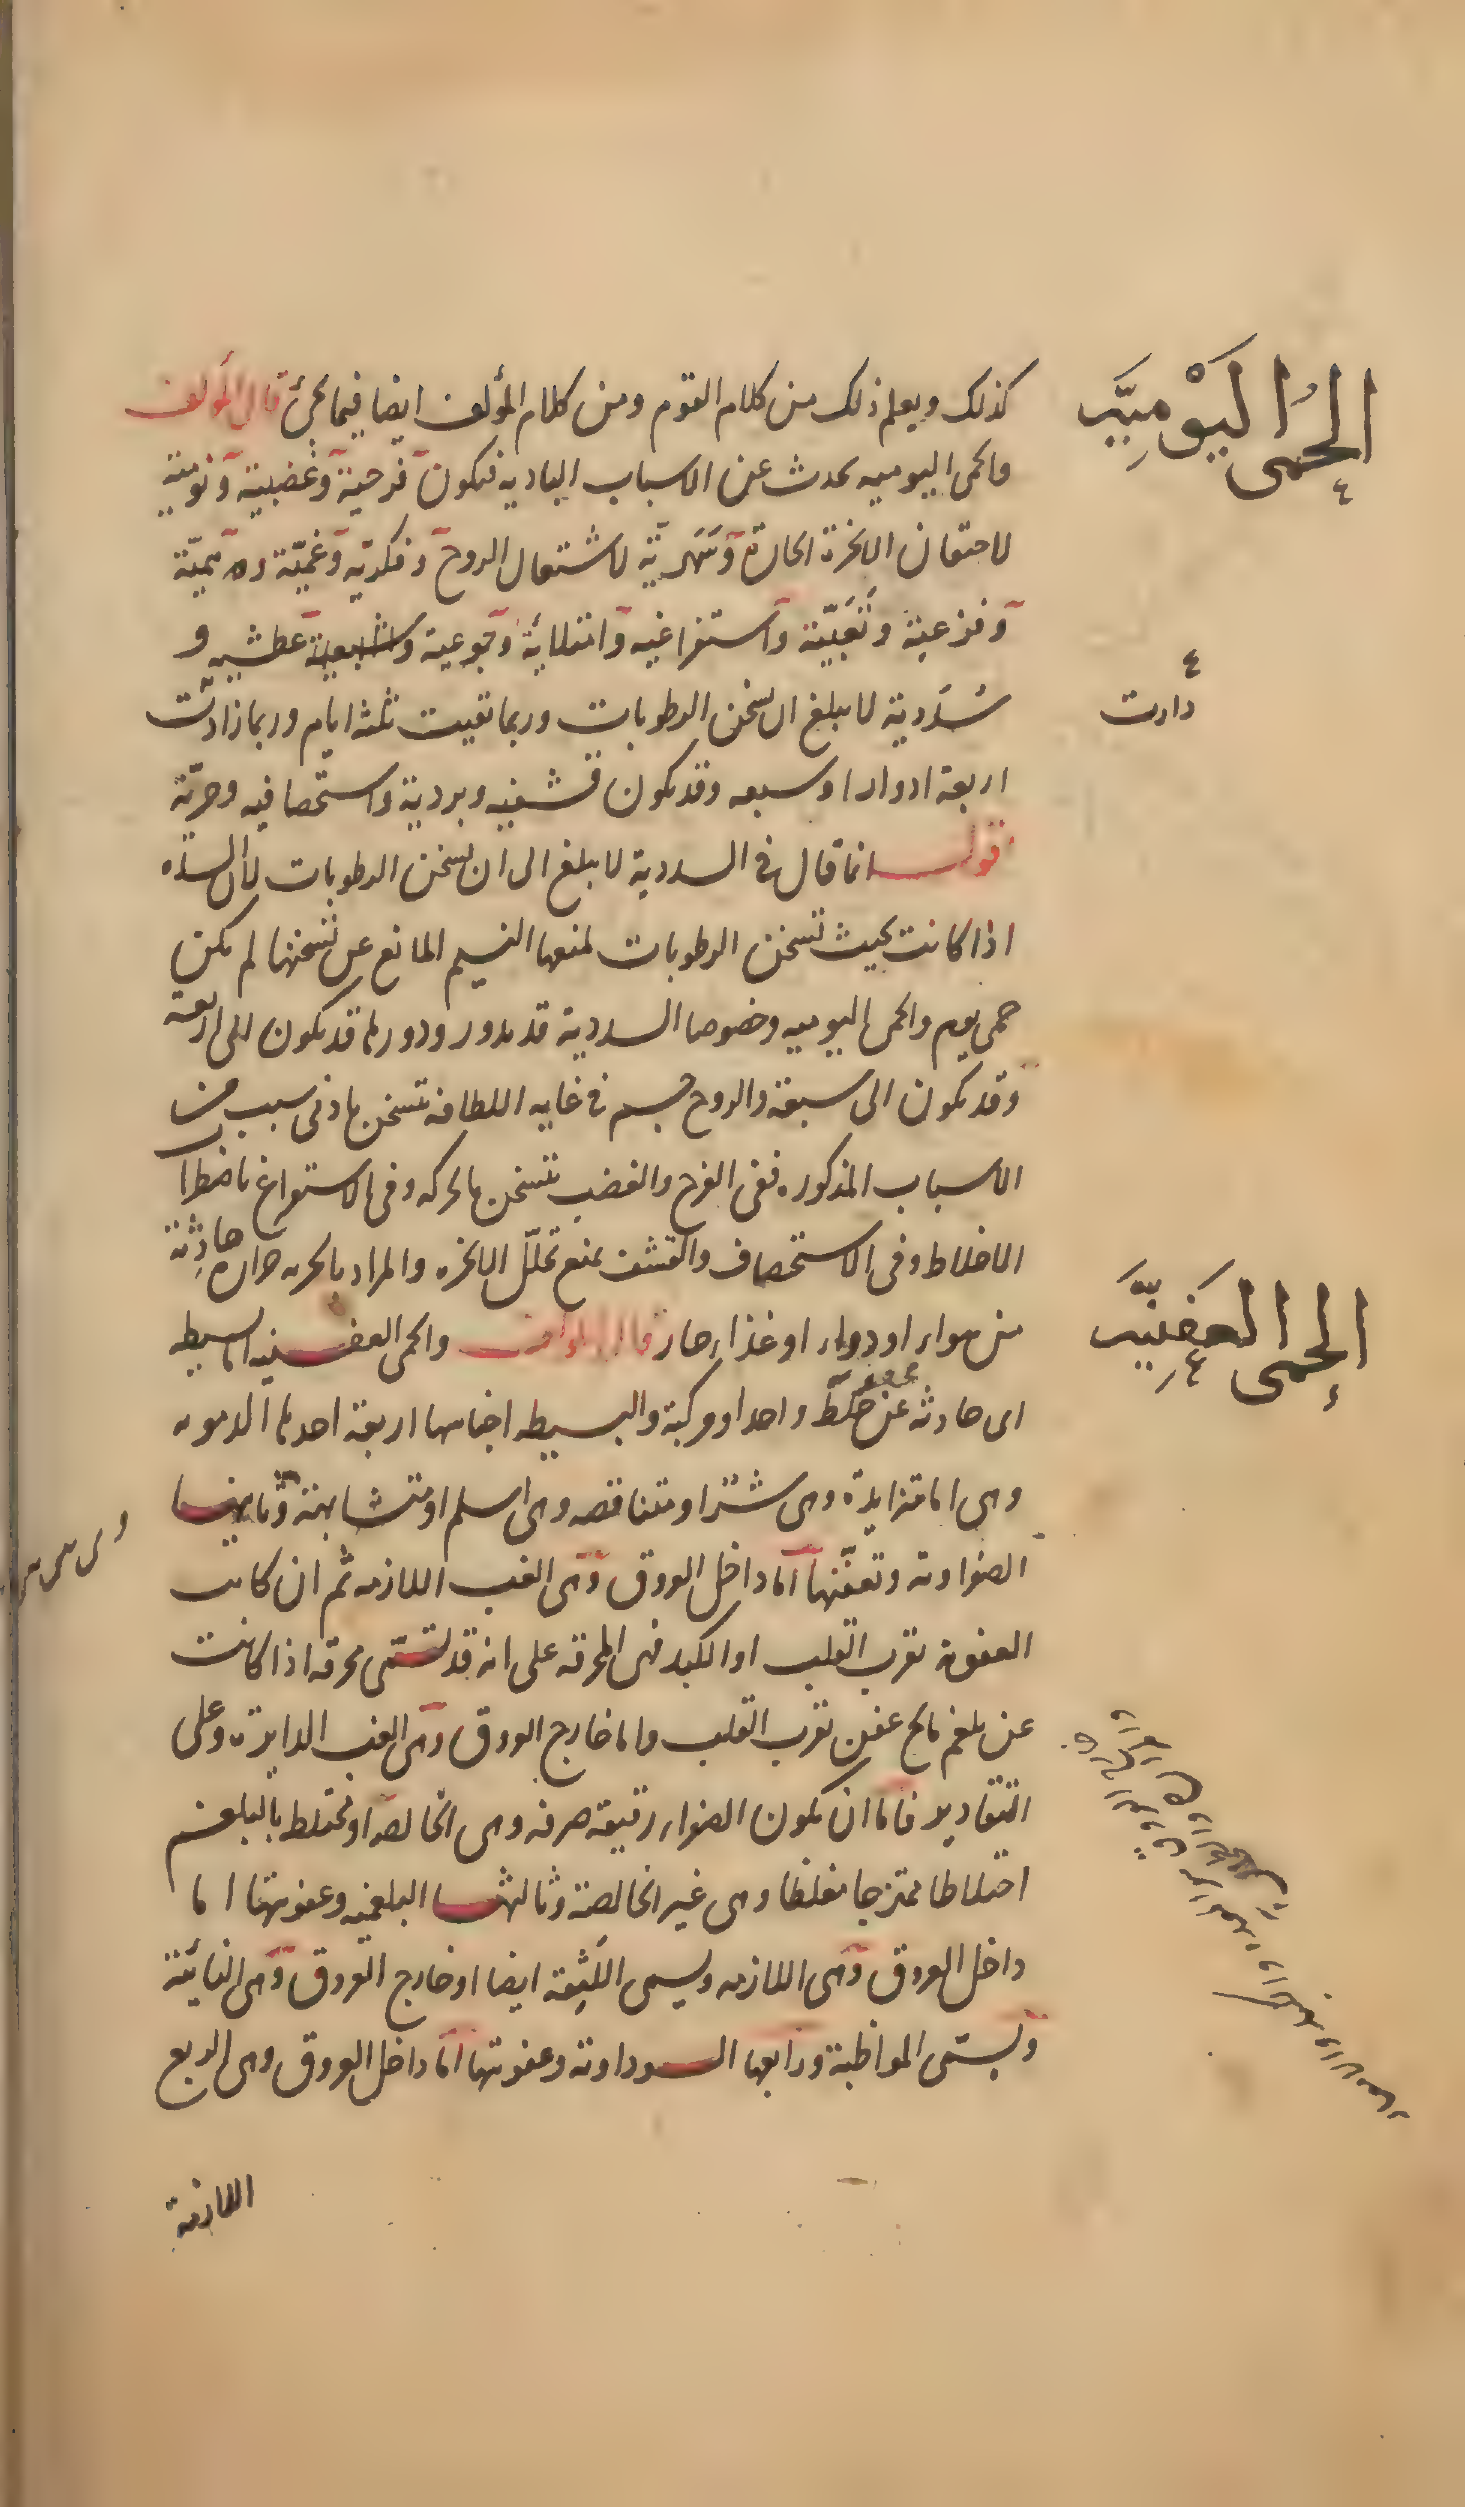 الحمى اليومية
كذلك ويعلم ذلك من كلام القوم ومن كلام المؤلف ايضا فيما يجئ قال المؤلف
والحمى اليوميه تحدث عن الاسباب الباديه فتكون فرحية وغضبية ونومية
لاحتقان الابخرة الحارة وسهرية لاشتعال الروح وفكرية وغمية وهمية
وفزعية وتعبية واستفراغيه وامتلائية وجوعية عطشيه و
سددية لا يبلغ ان تسخن الرطوبات وربما بقيت ثلثه ايام وربما زادت
دارت
اربعة ادوار او سبعه وقد يكون قشفيه وبردية واستحصافيه وحرية
قوله انما قال فى السددية لا يبلغ الى ان تسخن الرطوبات لان السده
اذا كانت بحيث تسخن الرطوبات لمنعها النسيم المانع عن تسخنها لم يكن
حمى يوم والحمى اليوميه وخصوصا السددية قد يدور ودورها قد يكون الى اربعة
وقد يكون الى سبعة والروح جسم فى غايه اللطافه تتسخن بادنى سبب من
الاسباب المذكوره ففى الفرح والغضب تتسخن بالحركه وفى الاستفراغ باضطراب
الاخلاط وفى الاستحصاف والقشف بمنع تحلل الابخره والمراد بالحريه حرارة حادثة
الحمى العفنية
من هواء او دواء او غذاء حار قال المؤلف والحمى العفنيه اما بسيطه
اى حادثه عن خلط واحد او مركبة والبسيطه اجناسها اربعة احدها الدمويه
وهى اما متزايدة وهى شر او متناقصه وهى اسلم او متشابهة وثانيهما
الصفراوية وتعفنها اما داخل العروق وهى الغب اللازمه ثم ان كانت
العفونة بقرب القلب او الكبد فهى المحرقه على انه قد تسمى محرقه اذا كانت
عن بلغم مالح عفن بقرب القلب واما خارج العروق وهى الغب الدايرة وعلى
التقادير فاما ان يكون الصفراء رقيقة صرفه وهى الخالصه او مختلط بالبلغم
اختلاطا ممتزجا مغلظا وهى غير الخالصة وثالثها البلغميه وعفونتها اما
داخل العروق وهى اللازمه ويسمى اللثقة ايضا او خارج العروق وهى النايبة
ويسمى المواظبة ورابعها السوداوية وعفونتها اما داخل العروق وهى الربع
اللازمة